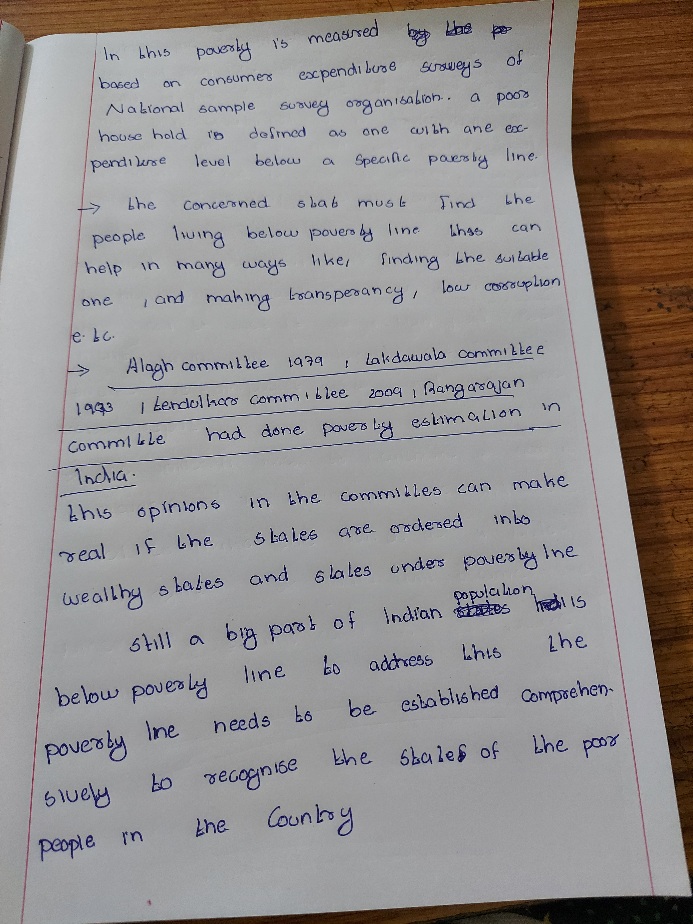 In this poverty is measured by the po
based on consumer expenditure surveys of
National sample survey organisation. a poor
house hold is defined as one with ane ex-
penditure level below a specific poverty line.
→ the concerned stat must find the
people living below poverty line thes can
help in many ways like, finding the suitable
one , and making transperancy, low corruption
e.tc.
→ Alagh committee 1979 , Lakdawala committee
1993 , tendulkar committee 2009 , Rangarajan
committe had done poverty estimation in
India.
this opinions in the committes can make
real if the states are ordered into
wealthy states and states under poverty lne
still a big part of Indian population is
below poverty line to address this the
poverty lne needs to be established comprehen-
sively to recognise the states of the poor
people in the Country